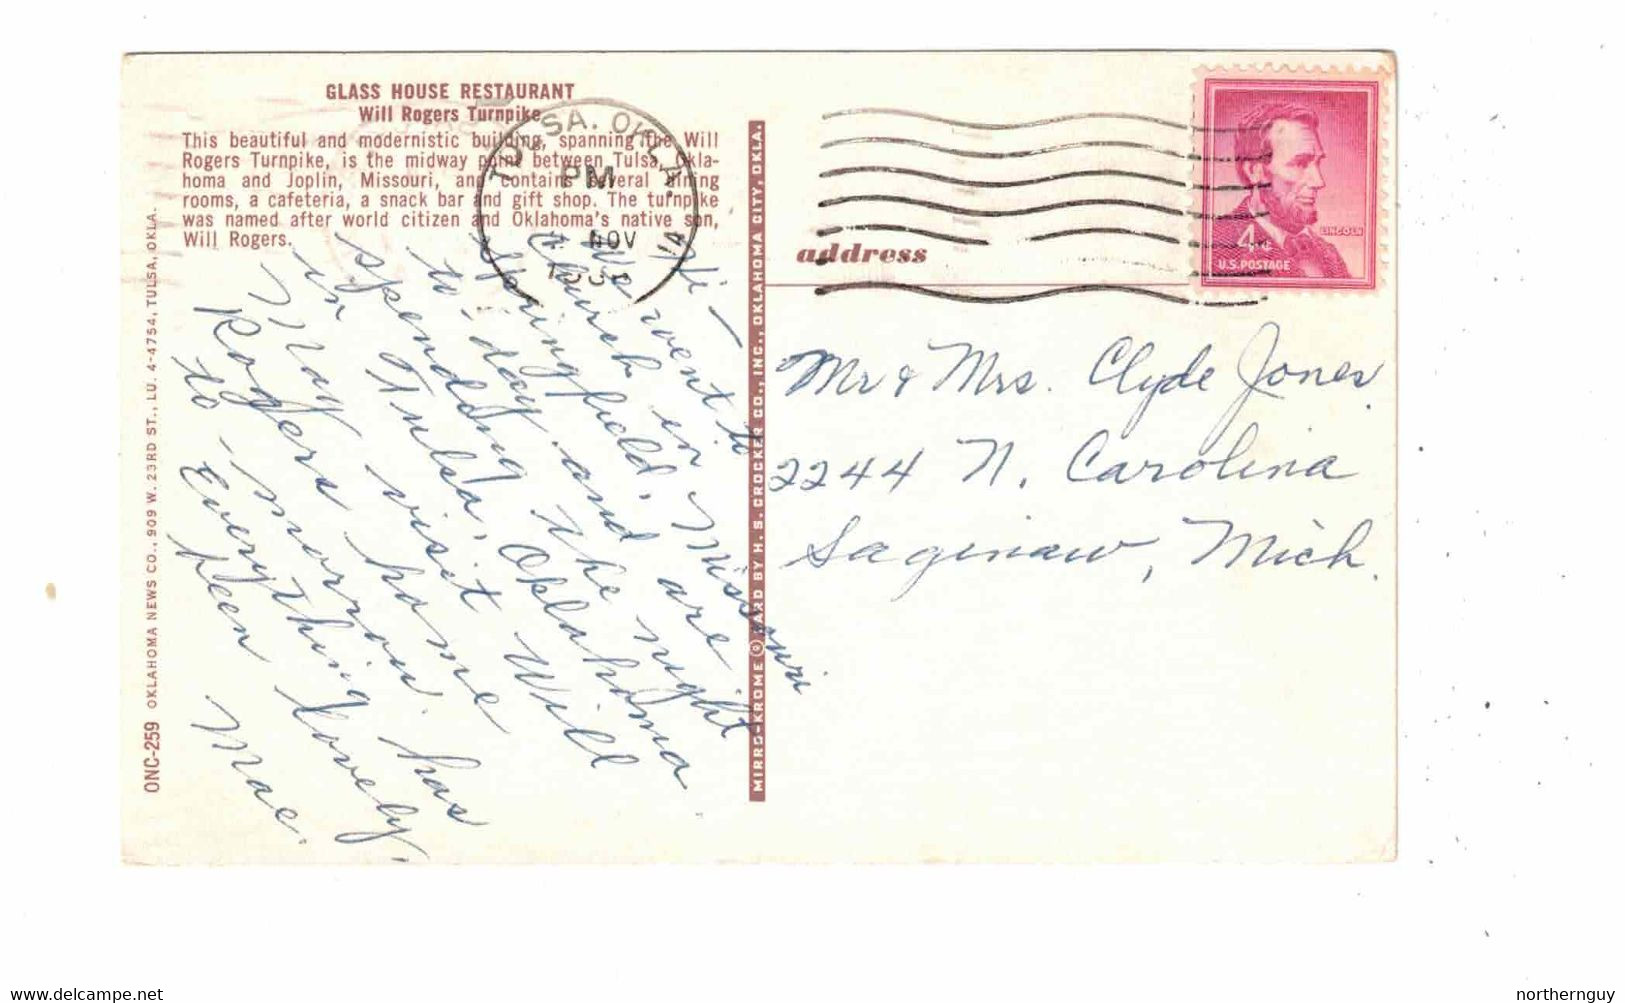 GLASS HOUSE RESTAURANT
Will Rogers Turnpike
This beautiful and modernistic building, spanning the Will
Rogers Turnpike, is the midway point between Tulsa, Okla-
homa and Joplin, Missouri, and contains several dining
rooms, a cafeteria, a snack bar and gift shop. The turnpike
was named after world citizen and Oklahoma's native son,
Will Rogers.
TULSA. OKLA.
PM
NOV
Hi -
We went to
Church in Missouri
Springfield, and are
to-day and
spending the night
in Tulsa, Oklahoma
May visit Will
Rogers home
to-morrow.
Everything has
been lovely.
Mae.
ONC-259 OKLAHOMA NEWS CO., 909 W. 23RD ST., LU. 4-4754, TULSA, OKLA.
MIRRO-KROME ® CARD BY H. S. CROCKER CO., INC., OKLAHOMA CITY, OKLA.
address
4¢
LINCOLN
U.S. POSTAGE
Mr & Mrs. Clyde Jones
2244 N. Carolina
Saginaw, Mich.
delcampe.net
northernguy